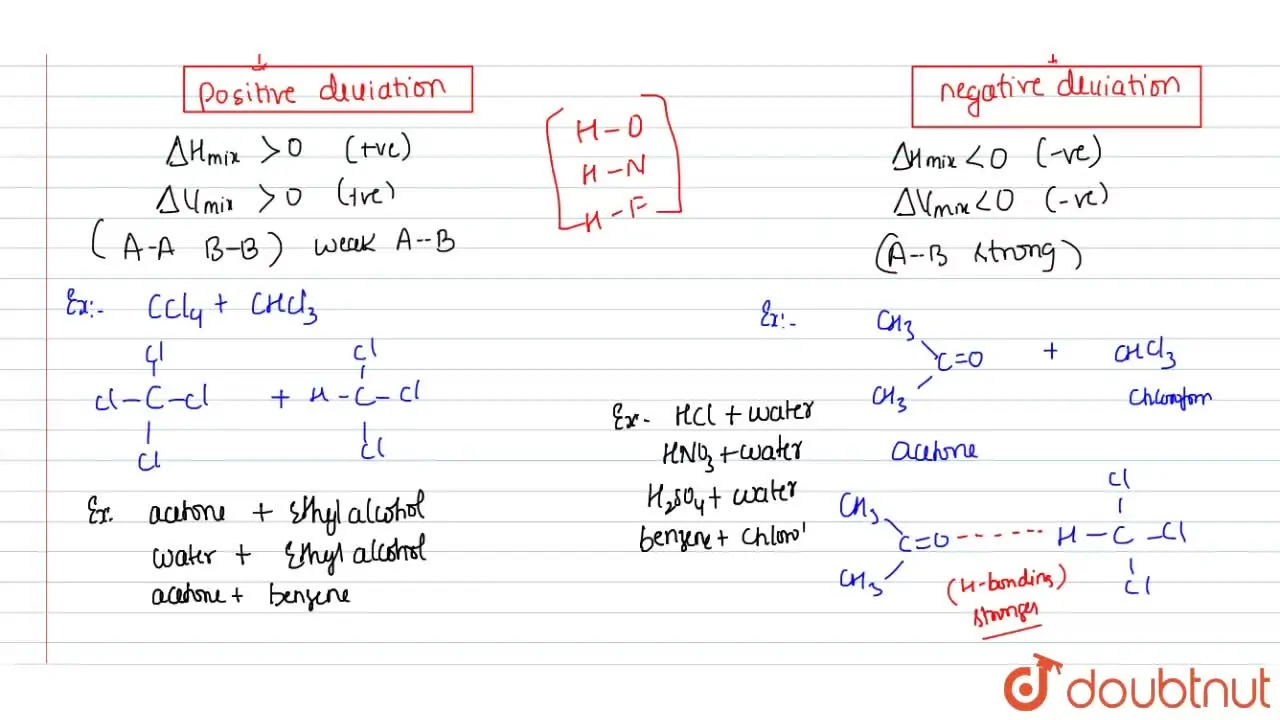 positive deviation
ΔHmix >0 (+ve)
ΔVmix >0 (+ve)
(A-A B-B) weak A--B
Ex:- CCl4 + CHCl3
Cl Cl
Cl-C-Cl + H-C-Cl
Cl Cl
Ex. acetone + Ethyl alcohol
water + Ethyl alcohol
acetone + benzene
H-O
H-N
H-F
Ex- HCl + water
HNO3 + water
H2SO4 + water
benzene + Chloro
negative deviation
ΔHmix <0 (-ve)
ΔVmix <0 (-ve)
(A--B strong)
Ex:- CH3
C=O + CHCl3
CH3 Chloroform
acetone
CH3 Cl
C=O ------ H-C-Cl
CH3 Cl
(H-bonding)
stronger
doubtnut